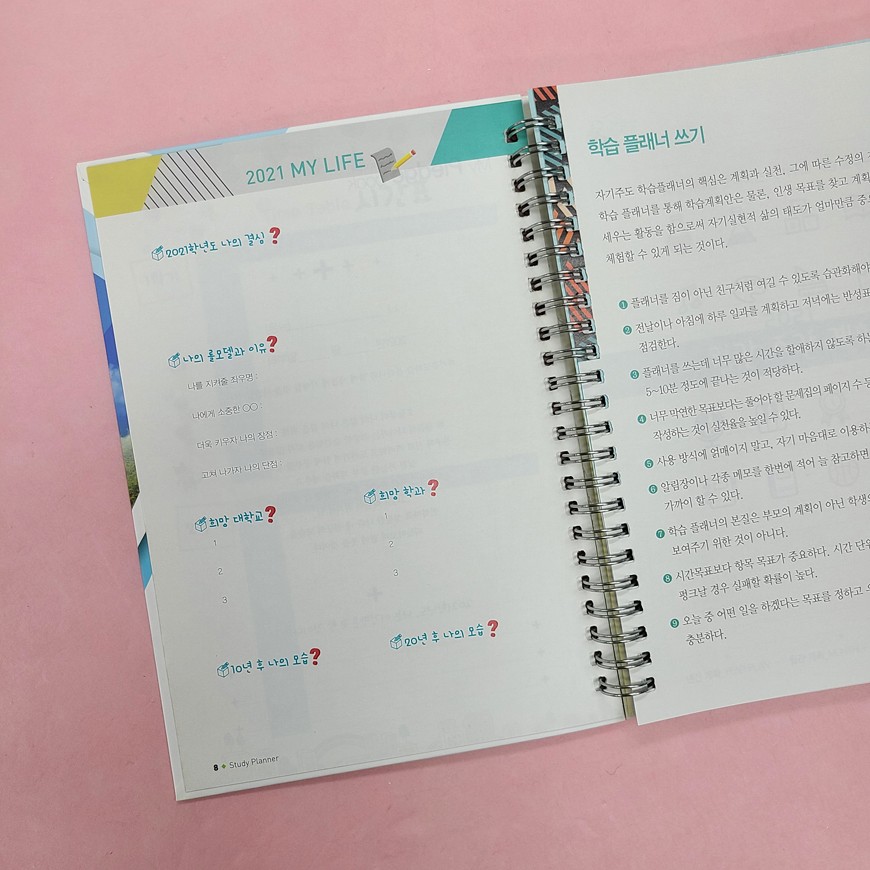 2021 MY LIFE
2021학년도 나의 결심?
나의 롤모델과 이유?
나를 지켜줄 좌우명 :
나에게 소중한 ○○ :
더욱 키우자 나의 장점 :
고쳐 나가자 나의 단점 :
희망 대학교?
1
2
3
희망 학과?
1
2
3
10년 후 나의 모습?
20년 후 나의 모습?
8 Study Planner
학습 플래너 쓰기
자기주도 학습플래너의 핵심은 계획과 실천, 그에 따른 수정의
학습 플래너를 통해 학습계획안은 물론, 인생 목표를 찾고
세우는 활동을 함으로써 자기실현적 삶의 태도가 얼마만큼
체험할 수 있게 되는 것이다.
1 플래너를 짐이 아닌 친구처럼 여길 수 있도록 습관화해야
2 전날이나 아침에 하루 일과를 계획하고 저녁에는
점검한다.
3 플래너를 쓰는데 너무 많은 시간을 할애하지 않도록
5~10분 정도에 끝나는 것이 적당하다.
4 너무 막연한 목표보다는 풀어야 할 문제집의 페이지 수
작성하는 것이 실천율을 높일 수 있다.
5 사용 방식에 얽매이지 말고, 자기 마음대로
6 알림장이나 각종 메모를 한번에 적어 늘 참고하면
가까이 할 수 있다.
7 학습 플래너의 본질은 부모의 계획이 아닌
보여주기 위한 것이 아니다.
8 시간목표보다 항목 목표가 중요하다. 시간
펑크날 경우 실패할 확률이 높다.
9 오늘 중 어떤 일을 하겠다는 목표를 정하고
충분하다.